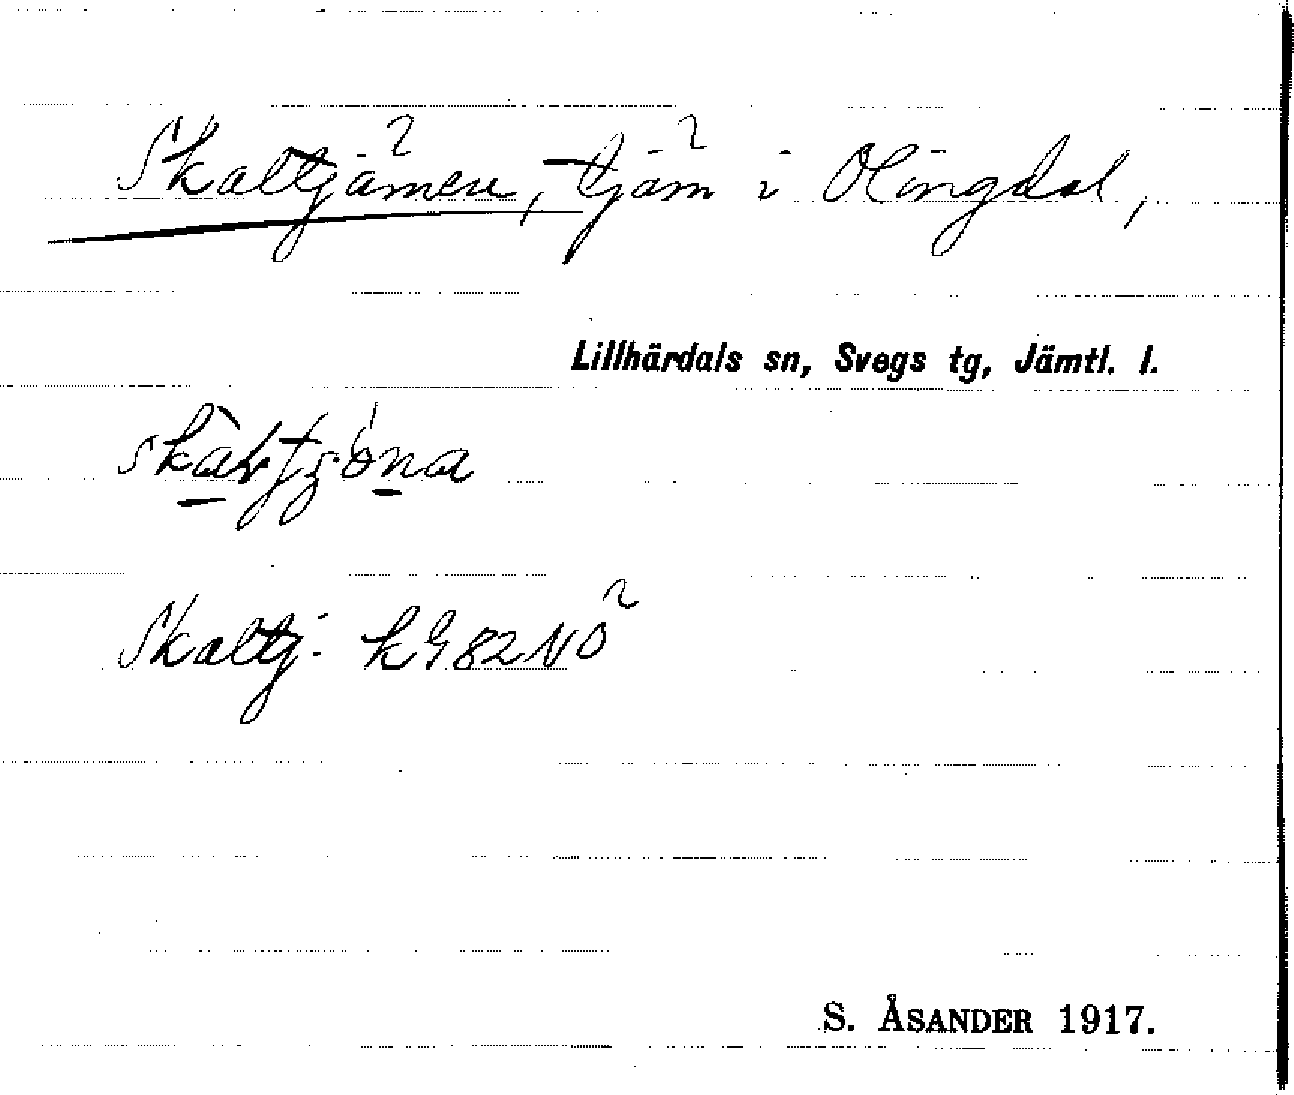 Skaltjärnen, tjärn i Olingdal,
Lillhärdals sn, Svegs tg, Jämtl. l.
Skaltj. k G 82 NO
S. ÅSANDER 1917.